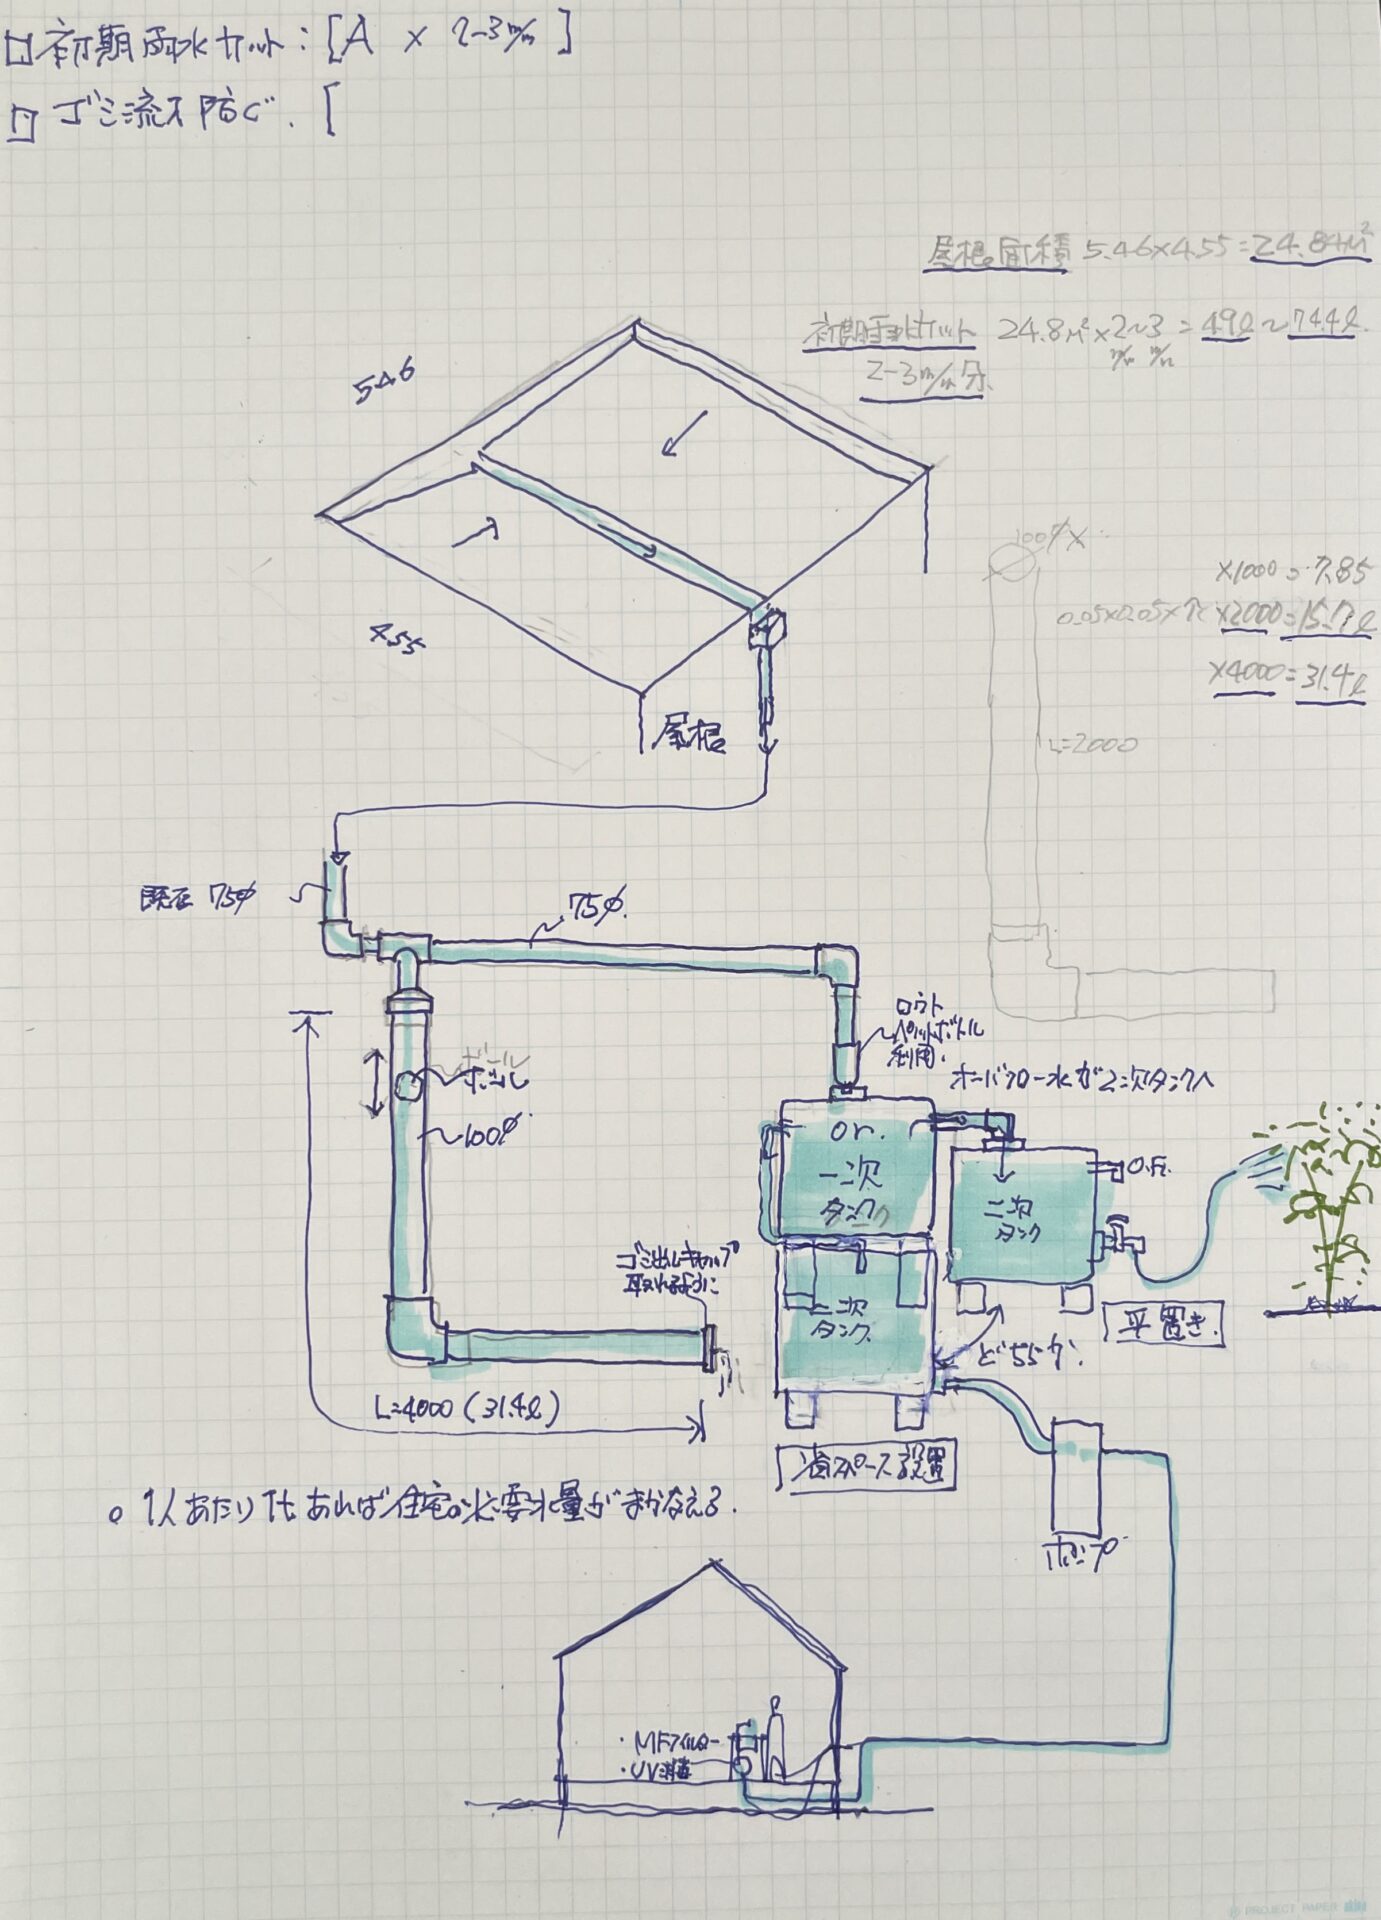 □初期雨水カット：[A × 2-3m/m ]
□ ゴミ流入防ぐ. [
屋根面積 5.46×4.55=24.84M²
初期雨水カット 24.8M²×2~3=49ℓ~74.4ℓ
m/m m/m
2-3m/m分.
546
455
100φ×
×1000=7.85
0.05×0.05×π ×2000=15.7ℓ
×4000=31.4ℓ
L=2000
屋根
既存 75φ
75φ.
ロウト
ペットボトル
利用.
オーバフロー水が2次タンクへ
ボール
ボール
100φ
or.
一次
タンク
二次
タンク
O.F.
ゴミ出しキャップ
取れるように
二次
タンク.
平置き.
どちらか.
L=4000 (31.4ℓ)
省スペース設置
○ 1人あたり1tあれば住宅の必要水量がまかなえる.
ポンプ
・MFフィルター
・UV消毒
PROJECT PAPER